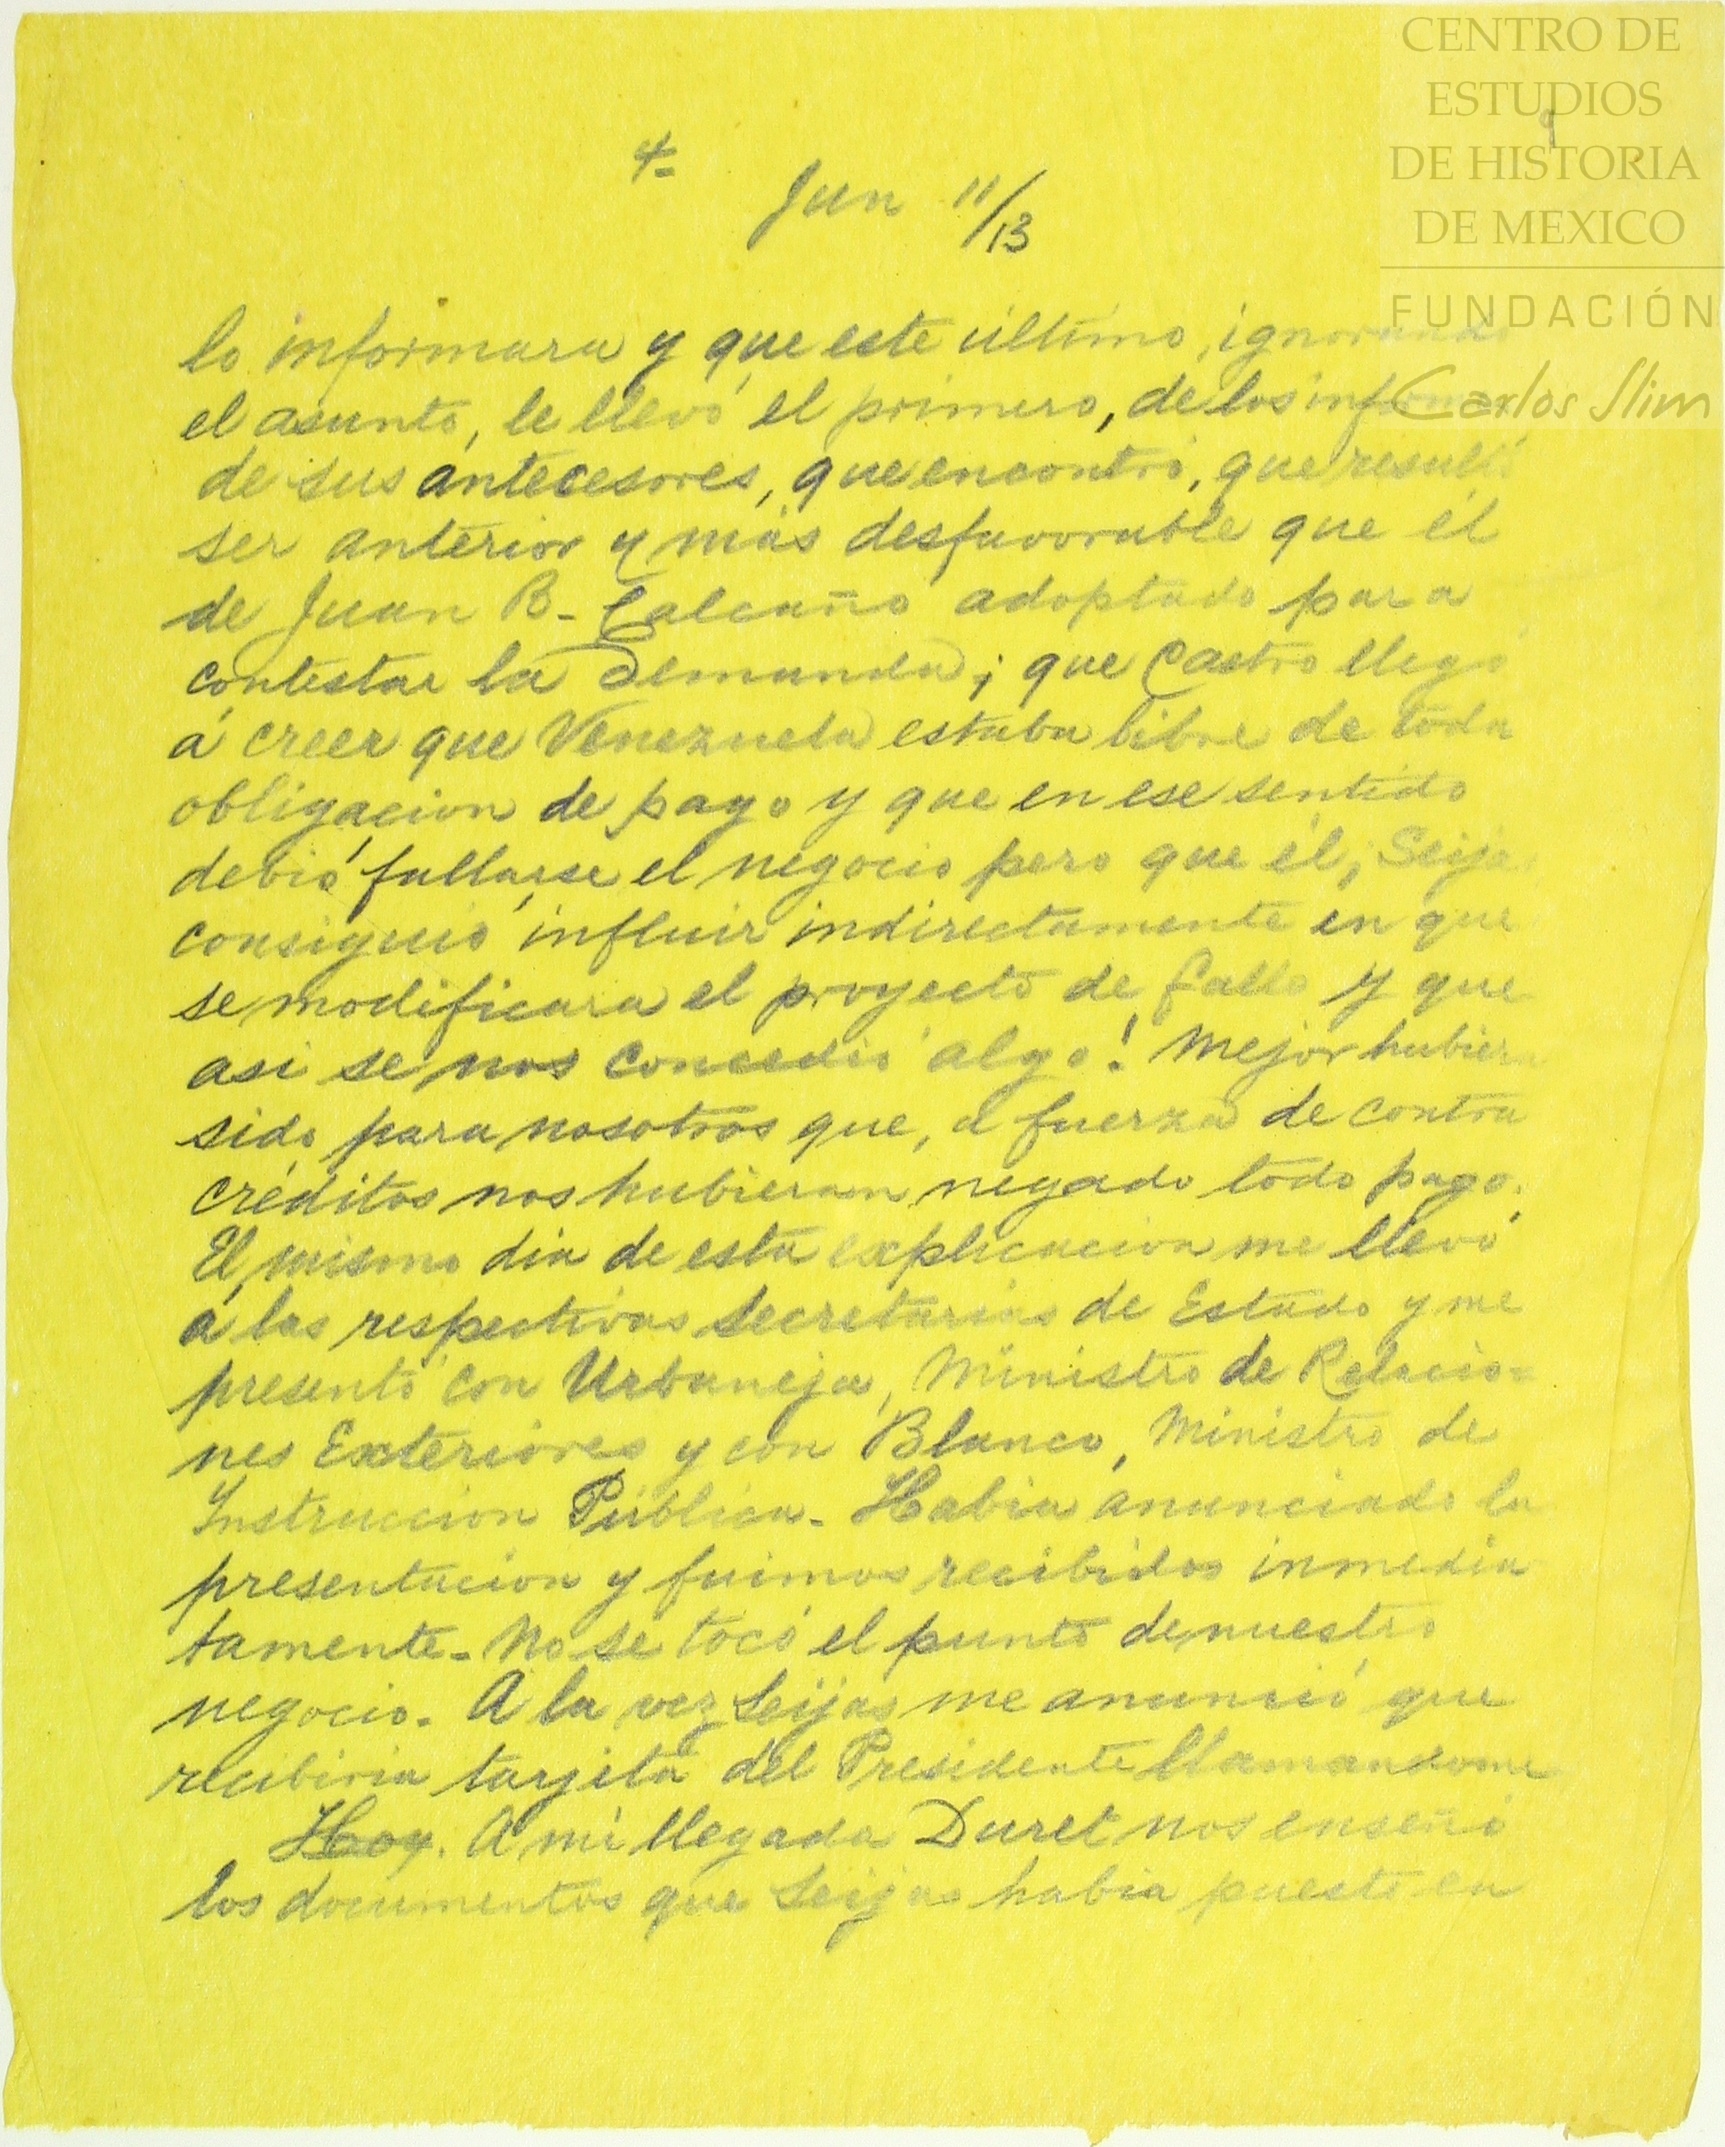 CENTRO DE
ESTUDIOS
DE HISTORIA
DE MEXICO
FUNDACIÓN
Carlos Slim
4-
Jun 11/13
lo informara y que este último, ignorando
el asunto, le llevó el primero, de los
de sus antecesores, que encontró, que resultó
ser anterior y más desfavorable que el
de Juan B. Calcaño adoptado para
contestar la demanda; que Castro llegó
á creer que Venezuela estaba libre de toda
obligacion de pago y que en ese sentido
debió fallarse el negocio pero que él, Seijas
consiguió influir indirectamente en que
se modificara el proyecto de fallo y que
asi se nos concedió algo! Mejor hubiera
sido para nosotros que, a fuerza de contra
créditos nos hubieran negado todo pago.
El mismo dia de esta explicacion me llevó
á las respectivas Secretarias de Estado y me
presentó con Urbaneja, Ministro de Relacio-
nes Exteriores y con Blanco, Ministro de
Instruccion Pública. Habia anunciado la
presentacion y fuimos recibidos inmedia
tamente. No se tocó el punto de nuestro
negocio. A la vez Seijas me anunció que
recibiria tarjeta del Presidente llamandome
Hoy. A mi llegada Duret nos enseñó
los documentos que Seijas habia puesto en